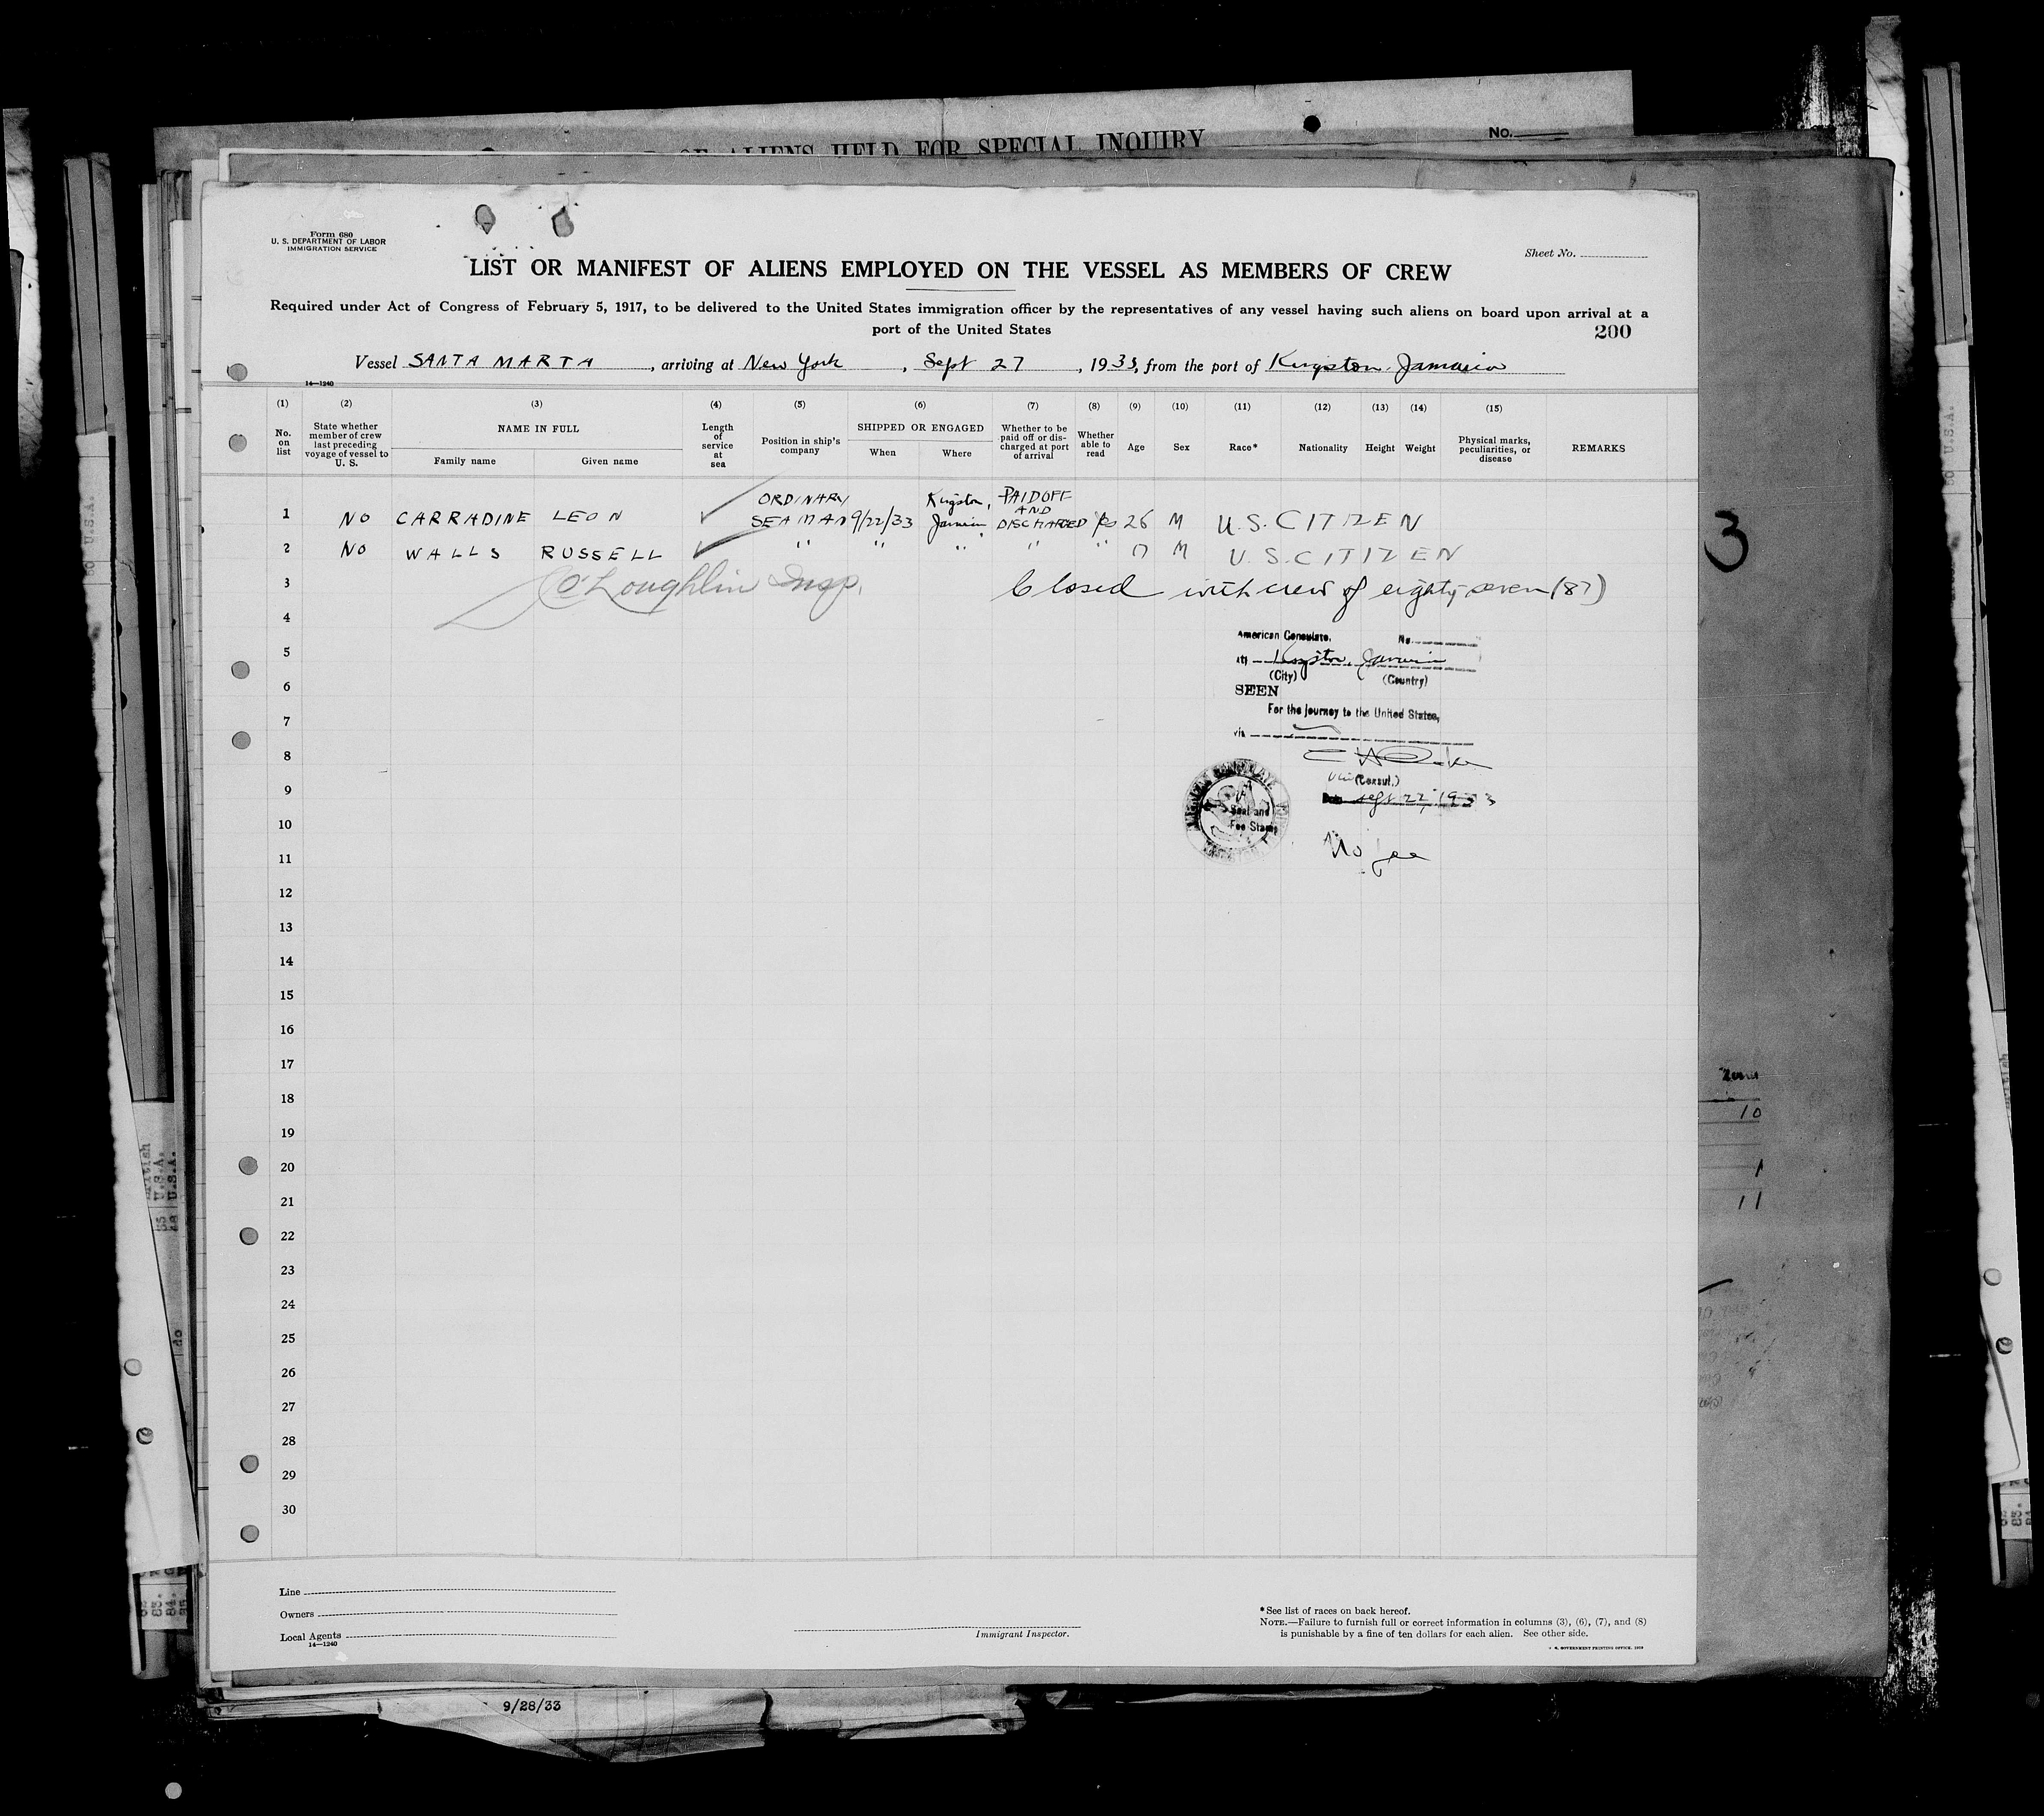 OF ALIENS HELD FOR SPECIAL INQUIRY
No.
Form 680
U. S. DEPARTMENT OF LABOR
IMMIGRATION SERVICE
Sheet No.
LIST OR MANIFEST OF ALIENS EMPLOYED ON THE VESSEL AS MEMBERS OF CREW
Required under Act of Congress of February 5, 1917, to be delivered to the United States immigration officer by the representatives of any vessel having such aliens on board upon arrival at a
port of the United States
200
Vessel SANTA MARTA, arriving at New York, Sept 27, 1933, from the port of Kingston, Jamaica
14—1240
(1) (2) (3) (4) (5) (6) (7) (8) (9) (10) (11) (12) (13) (14) (15)
No. on list
State whether member of crew last preceding voyage of vessel to U. S.
NAME IN FULL
Family name Given name
Length of service at sea
Position in ship's company
SHIPPED OR ENGAGED
When Where
Whether to be paid off or discharged at port of arrival
Whether able to read
Age Sex Race* Nationality Height Weight
Physical marks, peculiarities, or disease
REMARKS
1 NO CARRADINE LEON ✓ ORDINARY SEAMAN 9/22/33 Kingston, Jamaica PAID OFF AND DISCHARGED 26 M U.S. CITIZEN
2 NO WALLS RUSSELL ✓ " " " " " M U.S. CITIZEN
3 O'Loughlin Insp. Closed with crew of eighty-seven (87)
4
5
6
7
8
9
10
11
12
13
14
15
16
17
18
19
20
21
22
23
24
25
26
27
28
29
30
American Consulate. No.
At Kingston, Jamaica
(City) (Country)
SEEN
For the journey to the United States,
via
Vice (Consul.)
Date Sept 22, 1933
Seal and
Fee Stamp
No fee
3
10
1
11
Line
Owners
Local Agents
14—1240
Immigrant Inspector.
*See list of races on back hereof.
NOTE.—Failure to furnish full or correct information in columns (3), (6), (7), and (8)
is punishable by a fine of ten dollars for each alien. See other side.
U. S. GOVERNMENT PRINTING OFFICE. 1929
9/28/33